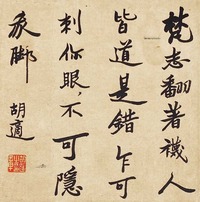 梵志翻著襪人
皆道是錯乍可
刺你眼不可隱
我脚
胡適